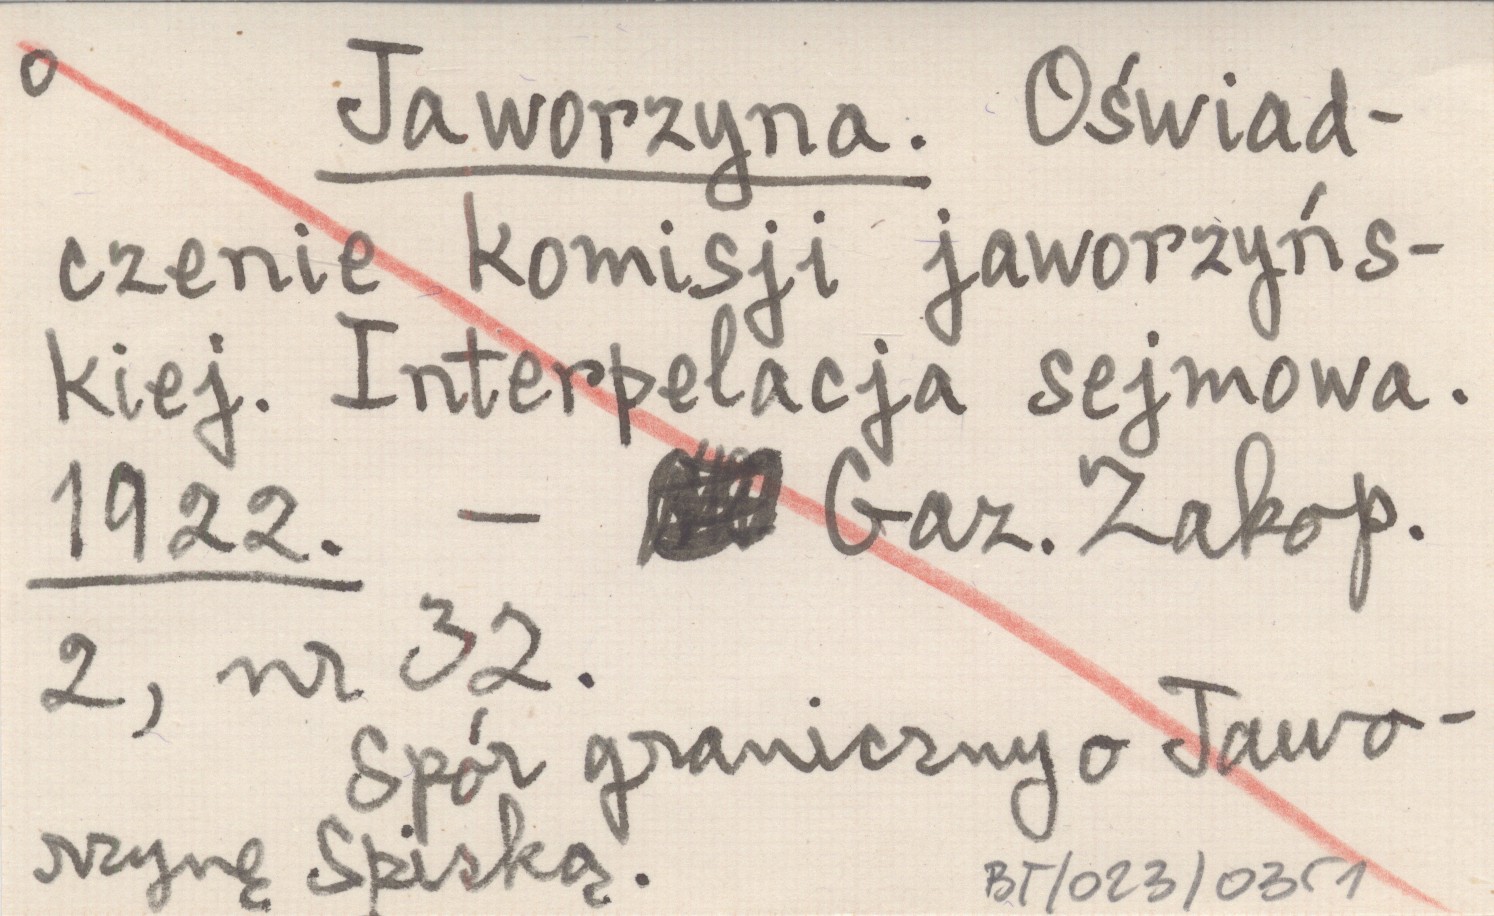 o Jaworzyna. Oświad-
czenie komisji jaworzyńs-
kiej. Interpelacja sejmowa.
1922. — Gaz. Zakop.
2, nr 32.
Spór graniczny o Jawo-
rzynę Spiską.
BT/023/0351